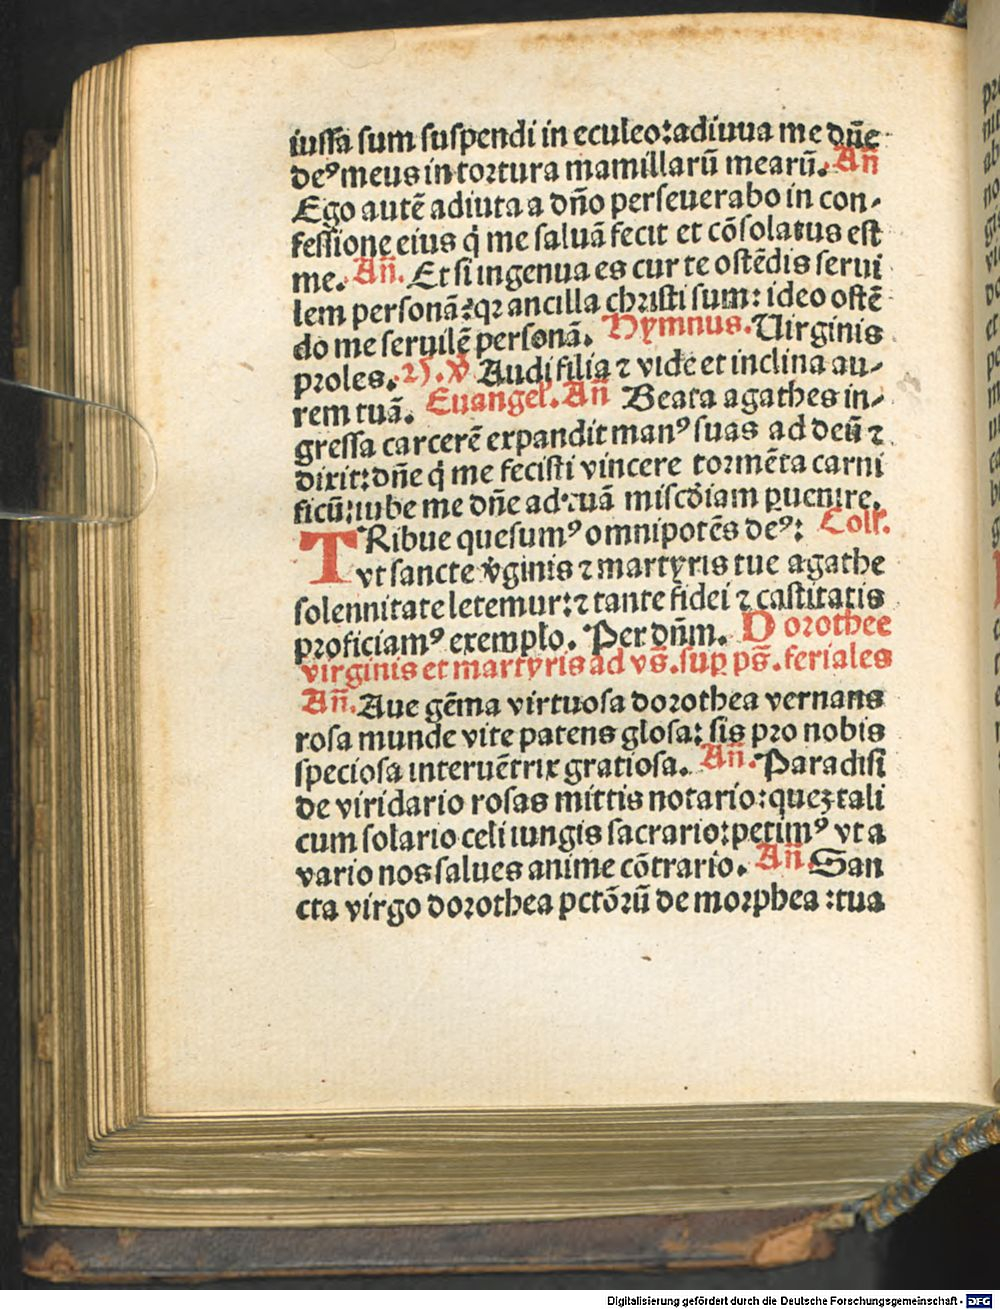 iussa sum suspendi in eculeo: adiuua me dn̄e
deꝰ meus in tortura mamillarū mearū. An̄
Ego autē adiuta a dn̄o perseuerabo in con-
fessione eius q̇ me saluā fecit et cōsolatus est
me. An̄. Et si ingenua es cur te ostēdis serui
lem personā: qꝛ ancilla christi sum: ideo ostē
do me seruilē personā. Hymnus. Uirginis
proles. ℣ Audi filia ⁊ vide et inclina au-
rem tuā. Euangel'. An̄ Beata agathes in-
gressa carcerē expandit manꝰ suas ad deū ⁊
dixit: dn̄e q̇ me fecisti vincere tormēta carni
ficū: iube me dn̄e ad tuā misc̄diam ꝑuenire.
TRibue quesumꝰ omnipotēs deꝰ: Coll'.
vt sancte v̄ginis ⁊ martyris tue agathe
solennitate letemur: ⁊ tante fidei ⁊ castitatis
proficiamꝰ exemplo. Per dn̄m. Dorothee
virginis et martyris ad vs̄. suꝑ ps̄. feriales
An̄. Aue gēma virtuosa dorothea vernans
rosa munde vite patens glosa: sis pro nobis
speciosa interuētrix gratiosa. An̄. Paradisi
de viridario rosas mittis notario: queꝫ tali
cum solario celi iungis sacrario: petimꝰ vt a
vario nos salues anime cōtrario. An̄. San
cta virgo dorothea pctōꝛū de morphea: tua
Digitalisierung gefördert durch die Deutsche Forschungsgemeinschaft - DFG